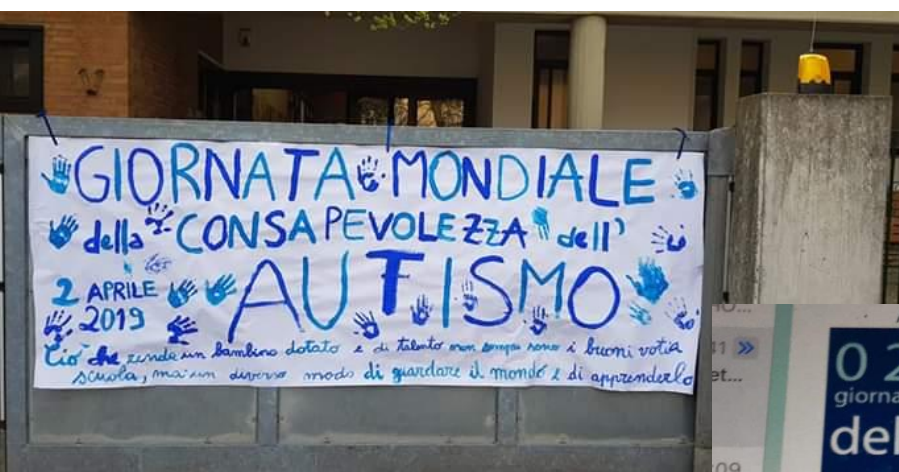 GIORNATA MONDIALE
della CONSAPEVOLEZZA dell'
AUTISMO
2 APRILE
2019
Ciò che rende un bambino dotato e di talento non sempre sono i buoni voti a
scuola, ma un diverso modo di guardare il mondo e di apprenderlo
41 »
et...
09
0 2
giorna
del